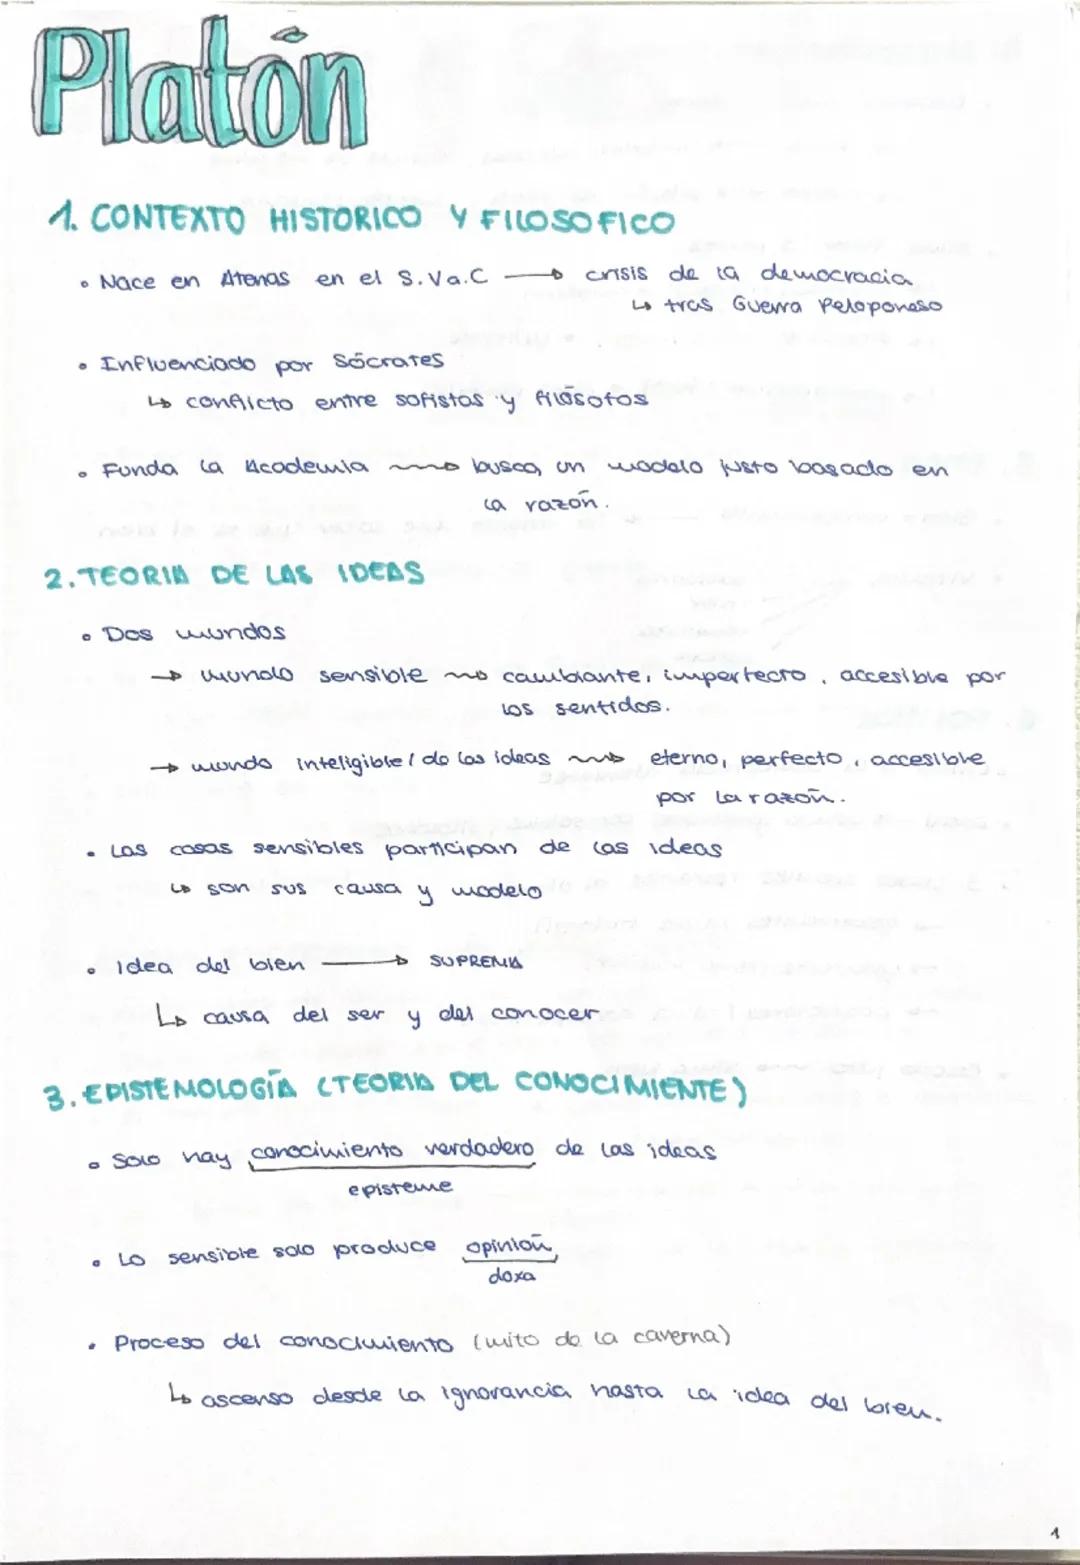 Platón
1. CONTEXTO HISTORICO Y FILOSOFICO
• Nace en Atenas en el S.V a.C → crisis de la democracia
↳ tras Guerra Peloponeso
• Influenciado por Sócrates
↳ conflicto entre sofistas y filósofos
• Funda la Academia → busca un modelo justo basado en
la razón.
2. TEORIA DE LAS IDEAS
• Dos mundos
→ mundo sensible → cambiante, imperfecto, accesible por
los sentidos.
→ mundo inteligible / de las ideas → eterno, perfecto, accesible
por la razón.
• Las cosas sensibles participan de las ideas
↳ son sus causa y modelo
• idea del bien → SUPREMA
↳ causa del ser y del conocer
3. EPISTEMOLOGÍA (TEORIA DEL CONOCIMIENTE)
• Solo hay conocimiento verdadero de las ideas
episteme
• Lo sensible solo produce opinión,
doxa
• Proceso del conocimiento (mito de la caverna)
↳ ascenso desde la ignorancia hasta la idea del bien.
1